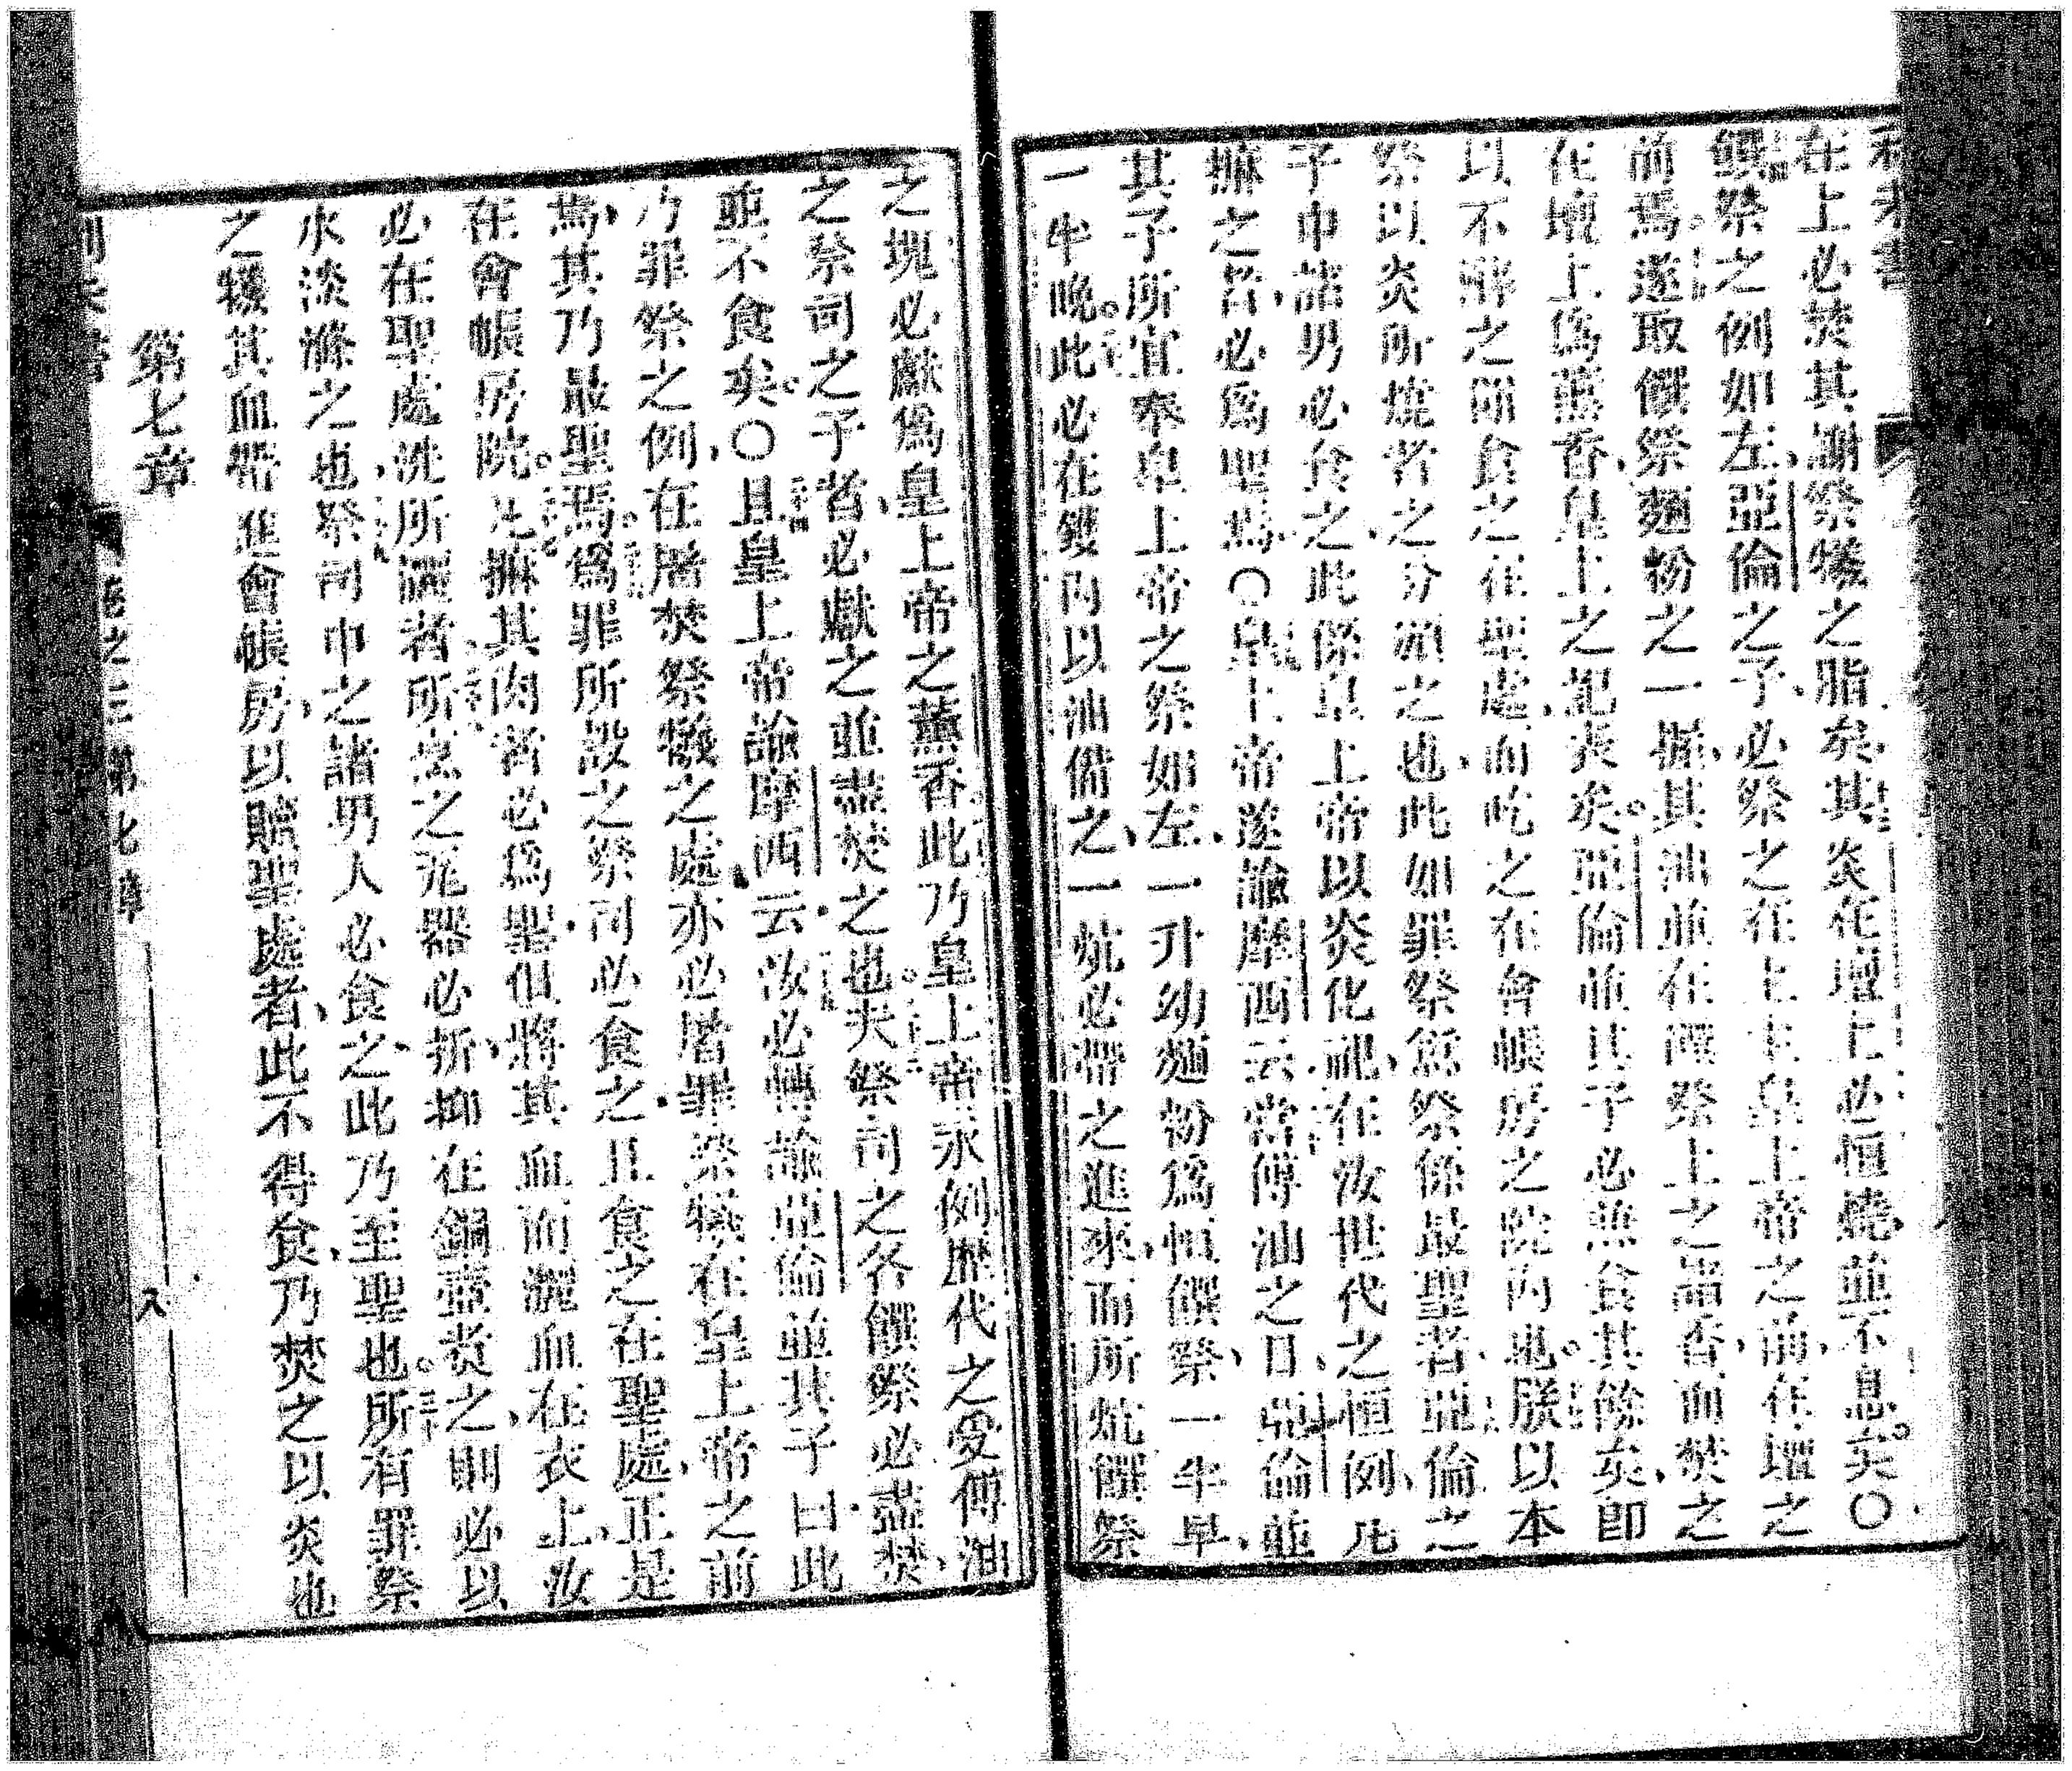 在上必焚其謝祭犧之脂矣其炎在壇上必恒燒並不息矣〇
饌祭之例如左亞倫之子必祭之在上主皇上帝之前在壇之
前焉遂取饌祭麵粉之一揪其油並在饌祭上之諸香而焚之
在壇上爲薰香皇上之記表矣亞倫並其子必無食其餘矣即
以不酵之餅食之在聖處而吃之在會帳房之院內也朕以本
祭以炎所燒者之分頒之也此如罪祭愆祭係最聖者亞倫之
子中諸男必食之此係皇上帝以炎化祀在汝世代之恒例凡
揪之者必爲聖焉〇皇上帝遂諭摩西云當傅油之日亞倫並
其子所宜奉皇上帝之祭如左一升幼麵粉爲恒饌祭一半早
一半晚此必在鑊內以油備之一炕必帶之進來而所炕饌祭
之塊必獻爲皇上帝之薰香此乃皇上帝永例歷代之受傅油
之祭司之子者必獻之並盡焚之也夫祭司之各饌祭必盡焚
並不食矣〇且皇上帝諭摩西云汝必轉諭亞倫並其子曰此
乃罪祭之例在屠焚祭犧之處亦必屠罪祭犧在皇上帝之前
焉其乃最聖焉爲罪所設之祭司必食之且食之在聖處正是
在會帳房院凡揪其肉者必爲聖但將其血而灑血在衣上汝
必在聖處洗所灑者所煮之泥器必折抑在銅壺煮之則必以
水淡滌之也祭司中之諸男人必食之此乃至聖也所有罪祭
之犧其血帶進會帳房以贖聖處者此不得食乃焚之以炎也
第七章
長之三第七章
八